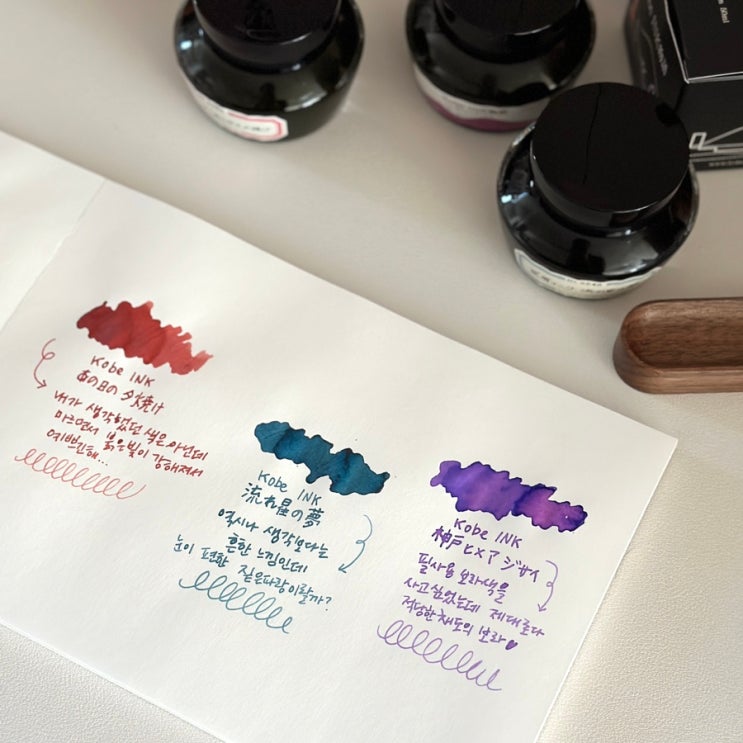 Kobe INK
あの日の夕焼け
내가 생각했던 색은 아닌데
마르면서 붉은빛이 강해져서
예쁘긴해...
Kobe INK
流れ星の夢
역시나 생각보다는
흔한 느낌인데
눈이 편한 짙은파랑이랄까?
Kobe INK
神戸ヒメアジサイ
필사용 보라색을
사고싶었는데 제대로다
적당한 채도의 보라♥
50ml